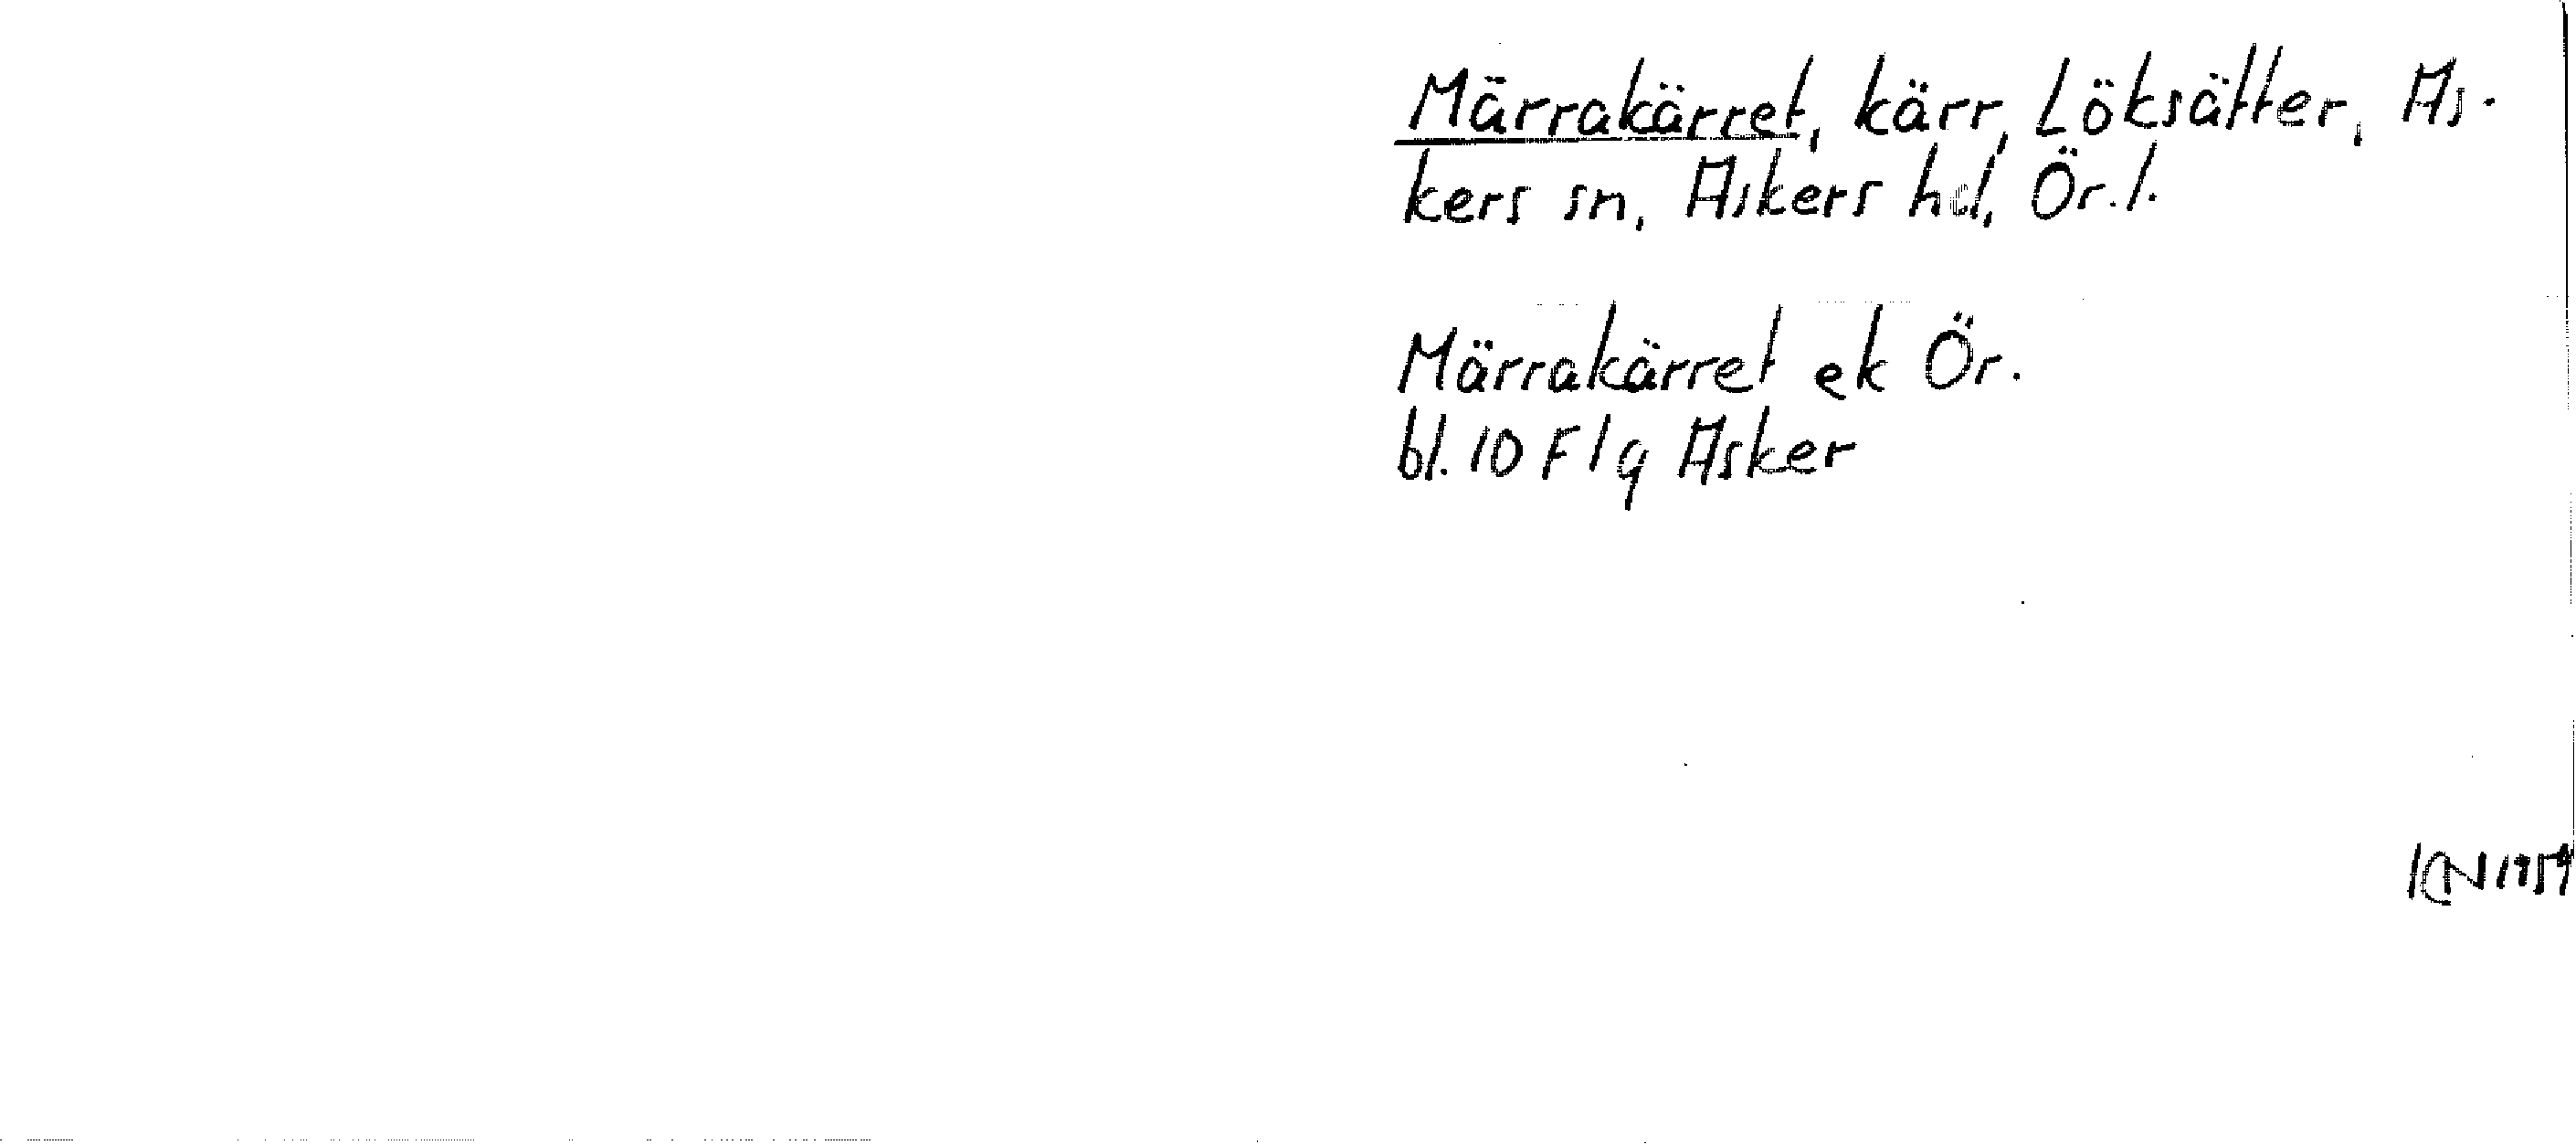 Märrakärret, kärr, Löksätter, As-
kers sn, Askers hd, Ör. l.
Märrakärret ek Ör.
bl. 10 F 1 g Asker